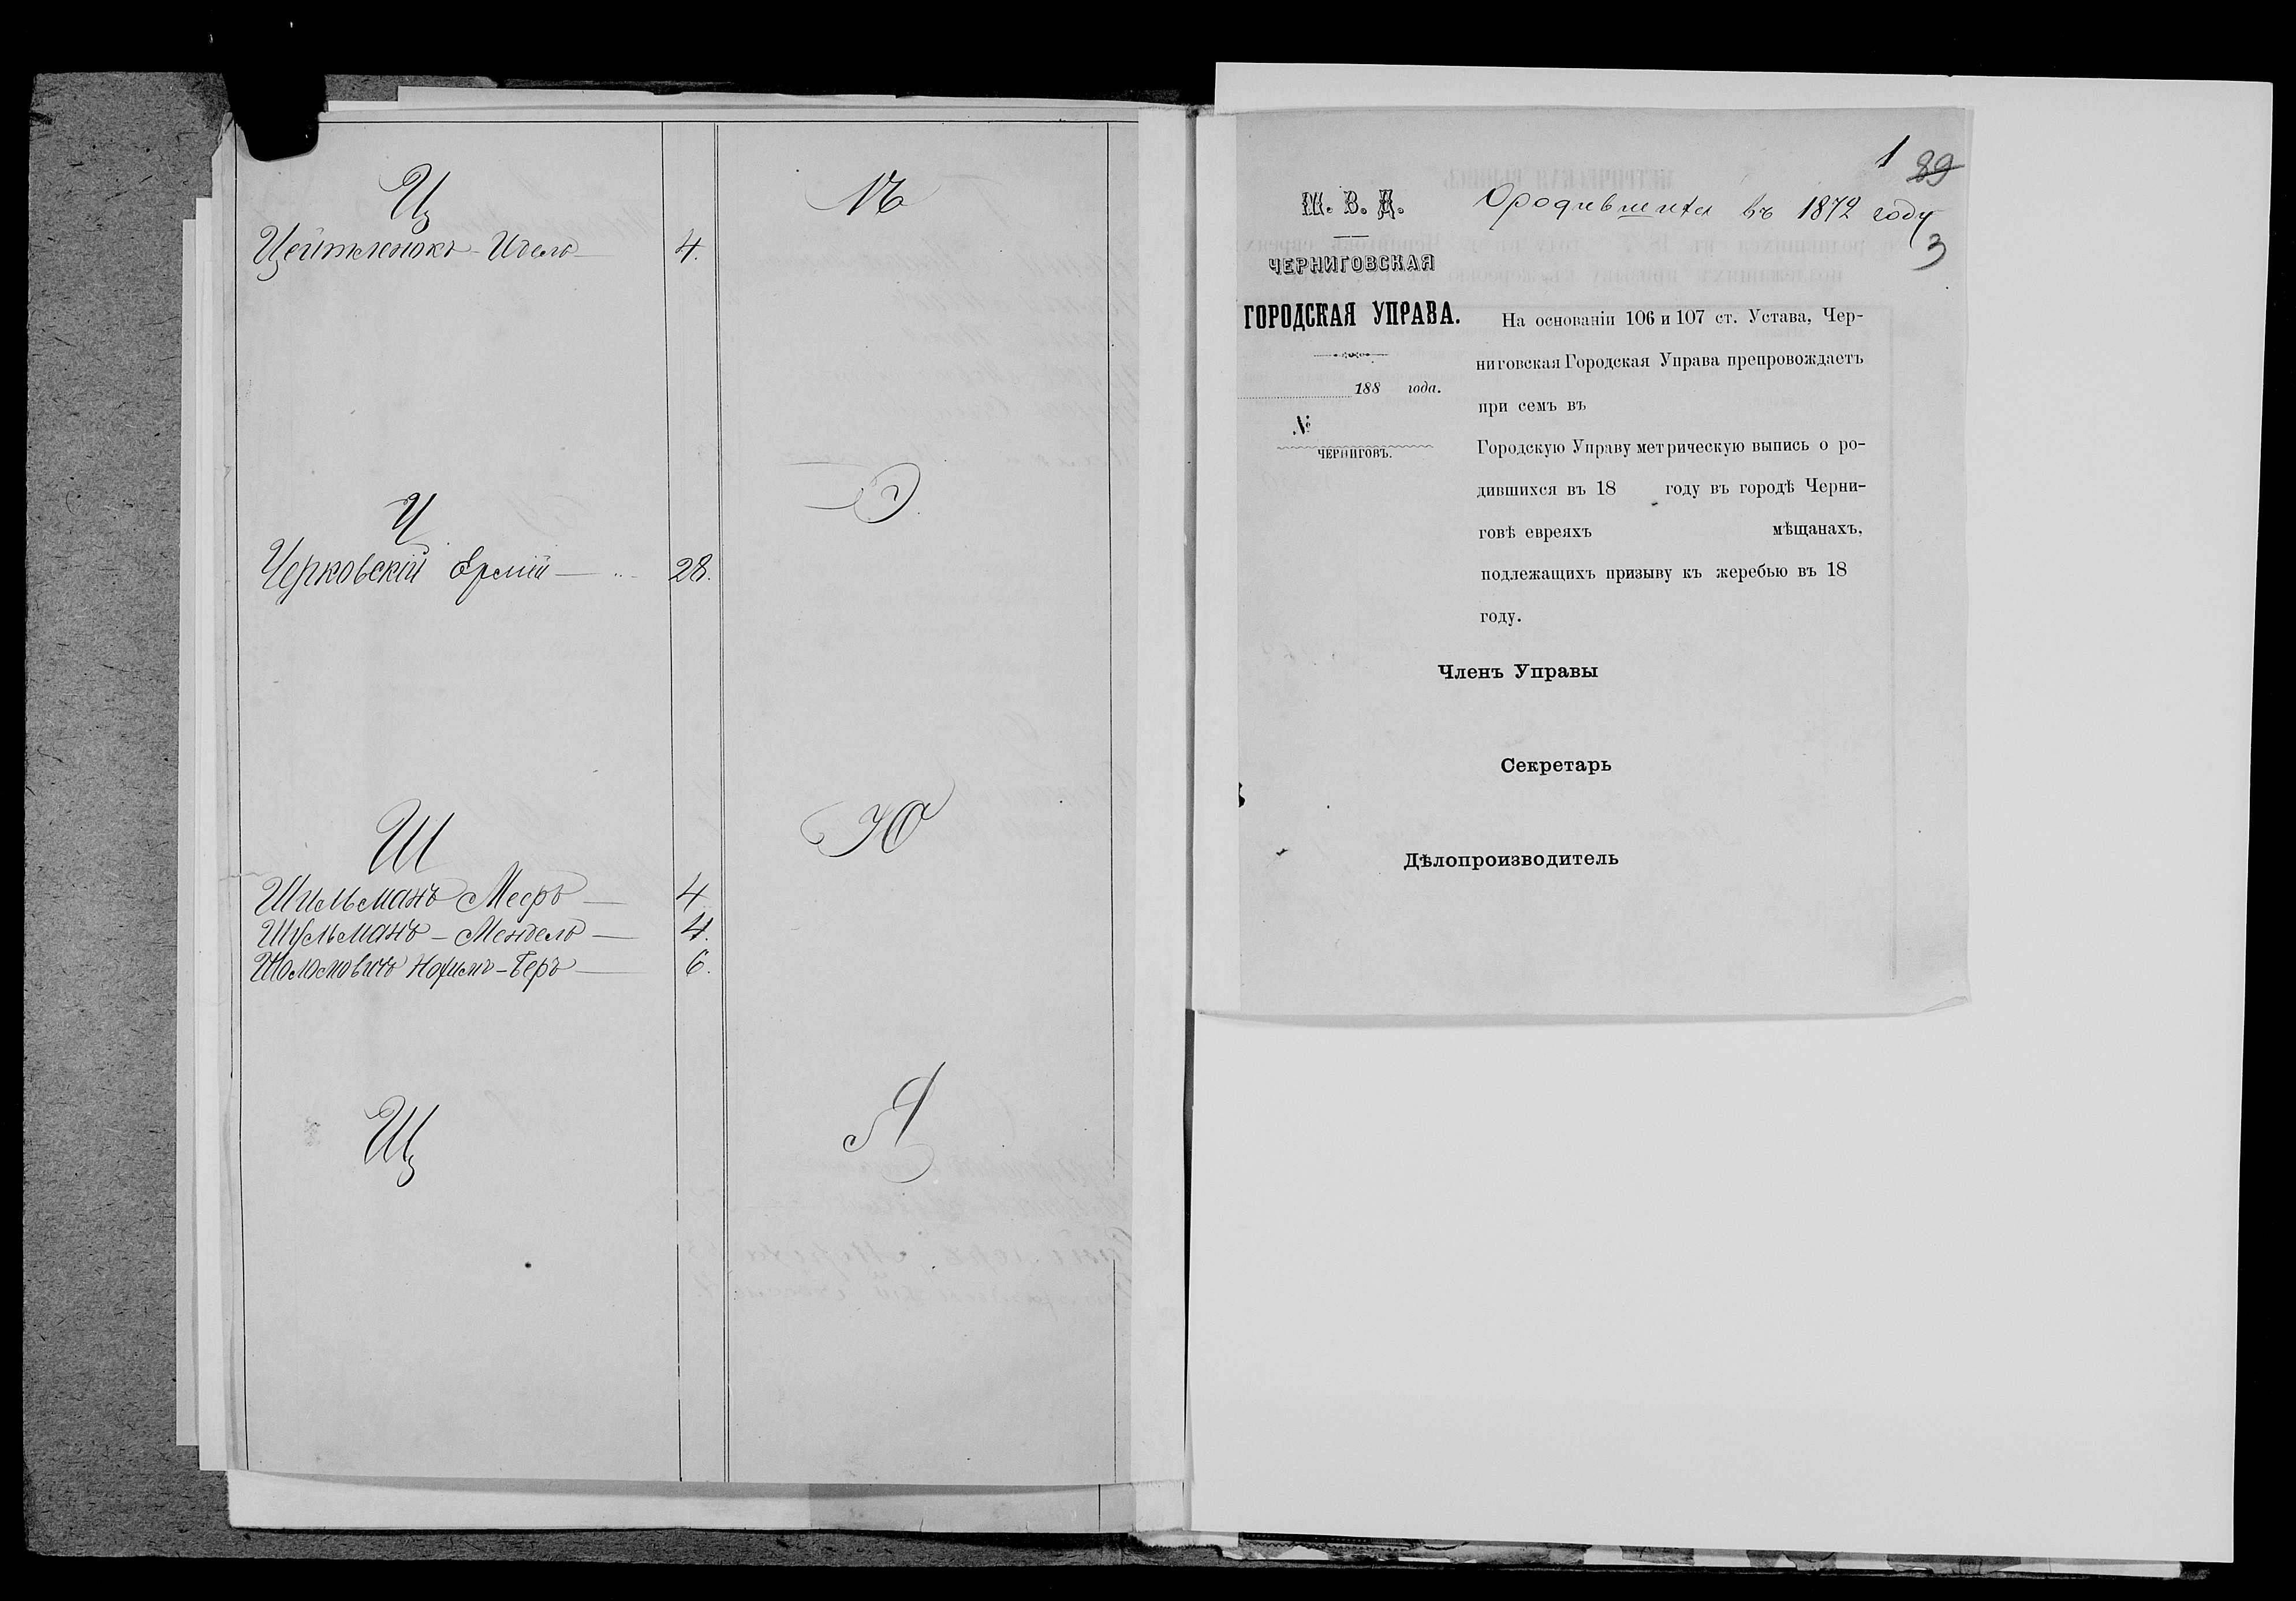 Ц
Цейтленокъ - Идель 4.
Ч
Черковскій Ермій 28.
Ш
Шильманъ Мееръ 4
Шульманъ - Мендель 4.
Шоломовичъ Нохимъ-Беръ 6.
Щ
Ѣ
Э
Ю
Я
1 89
М. В. Д.
О родившихся въ 1872 году
3
ЧЕРНИГОВСКАЯ
ГОРОДСКАЯ УПРАВА.
188 года.
№
ЧЕРНИГОВЪ.
На основаніи 106 и 107 ст. Устава, Чер-
ниговская Городская Управа препровождаетъ
при семъ въ
Городскую Управу метрическую выпись о ро-
дившихся въ 18 году въ городѣ Черни-
говѣ евреяхъ мѣщанахъ,
подлежащихъ призыву къ жеребью въ 18
году.
Членъ Управы
Секретарь
Дѣлопроизводитель